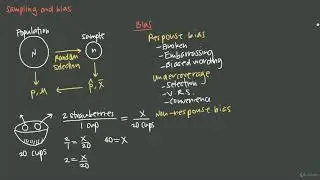 Sampling and bias
Population
N
Random
Selection
Sample
n
p, μ
p̂, x̄
20 cups
2 strawberries
1 cup
=
X
20 cups
2/1 = X/20
40 = X
2 = X/20
Bias
Response bias
- Broken
- Embarrassing
- Biased wording
Undercoverage
- Selection
- V.R.S.
- Convenience
Non-response bias